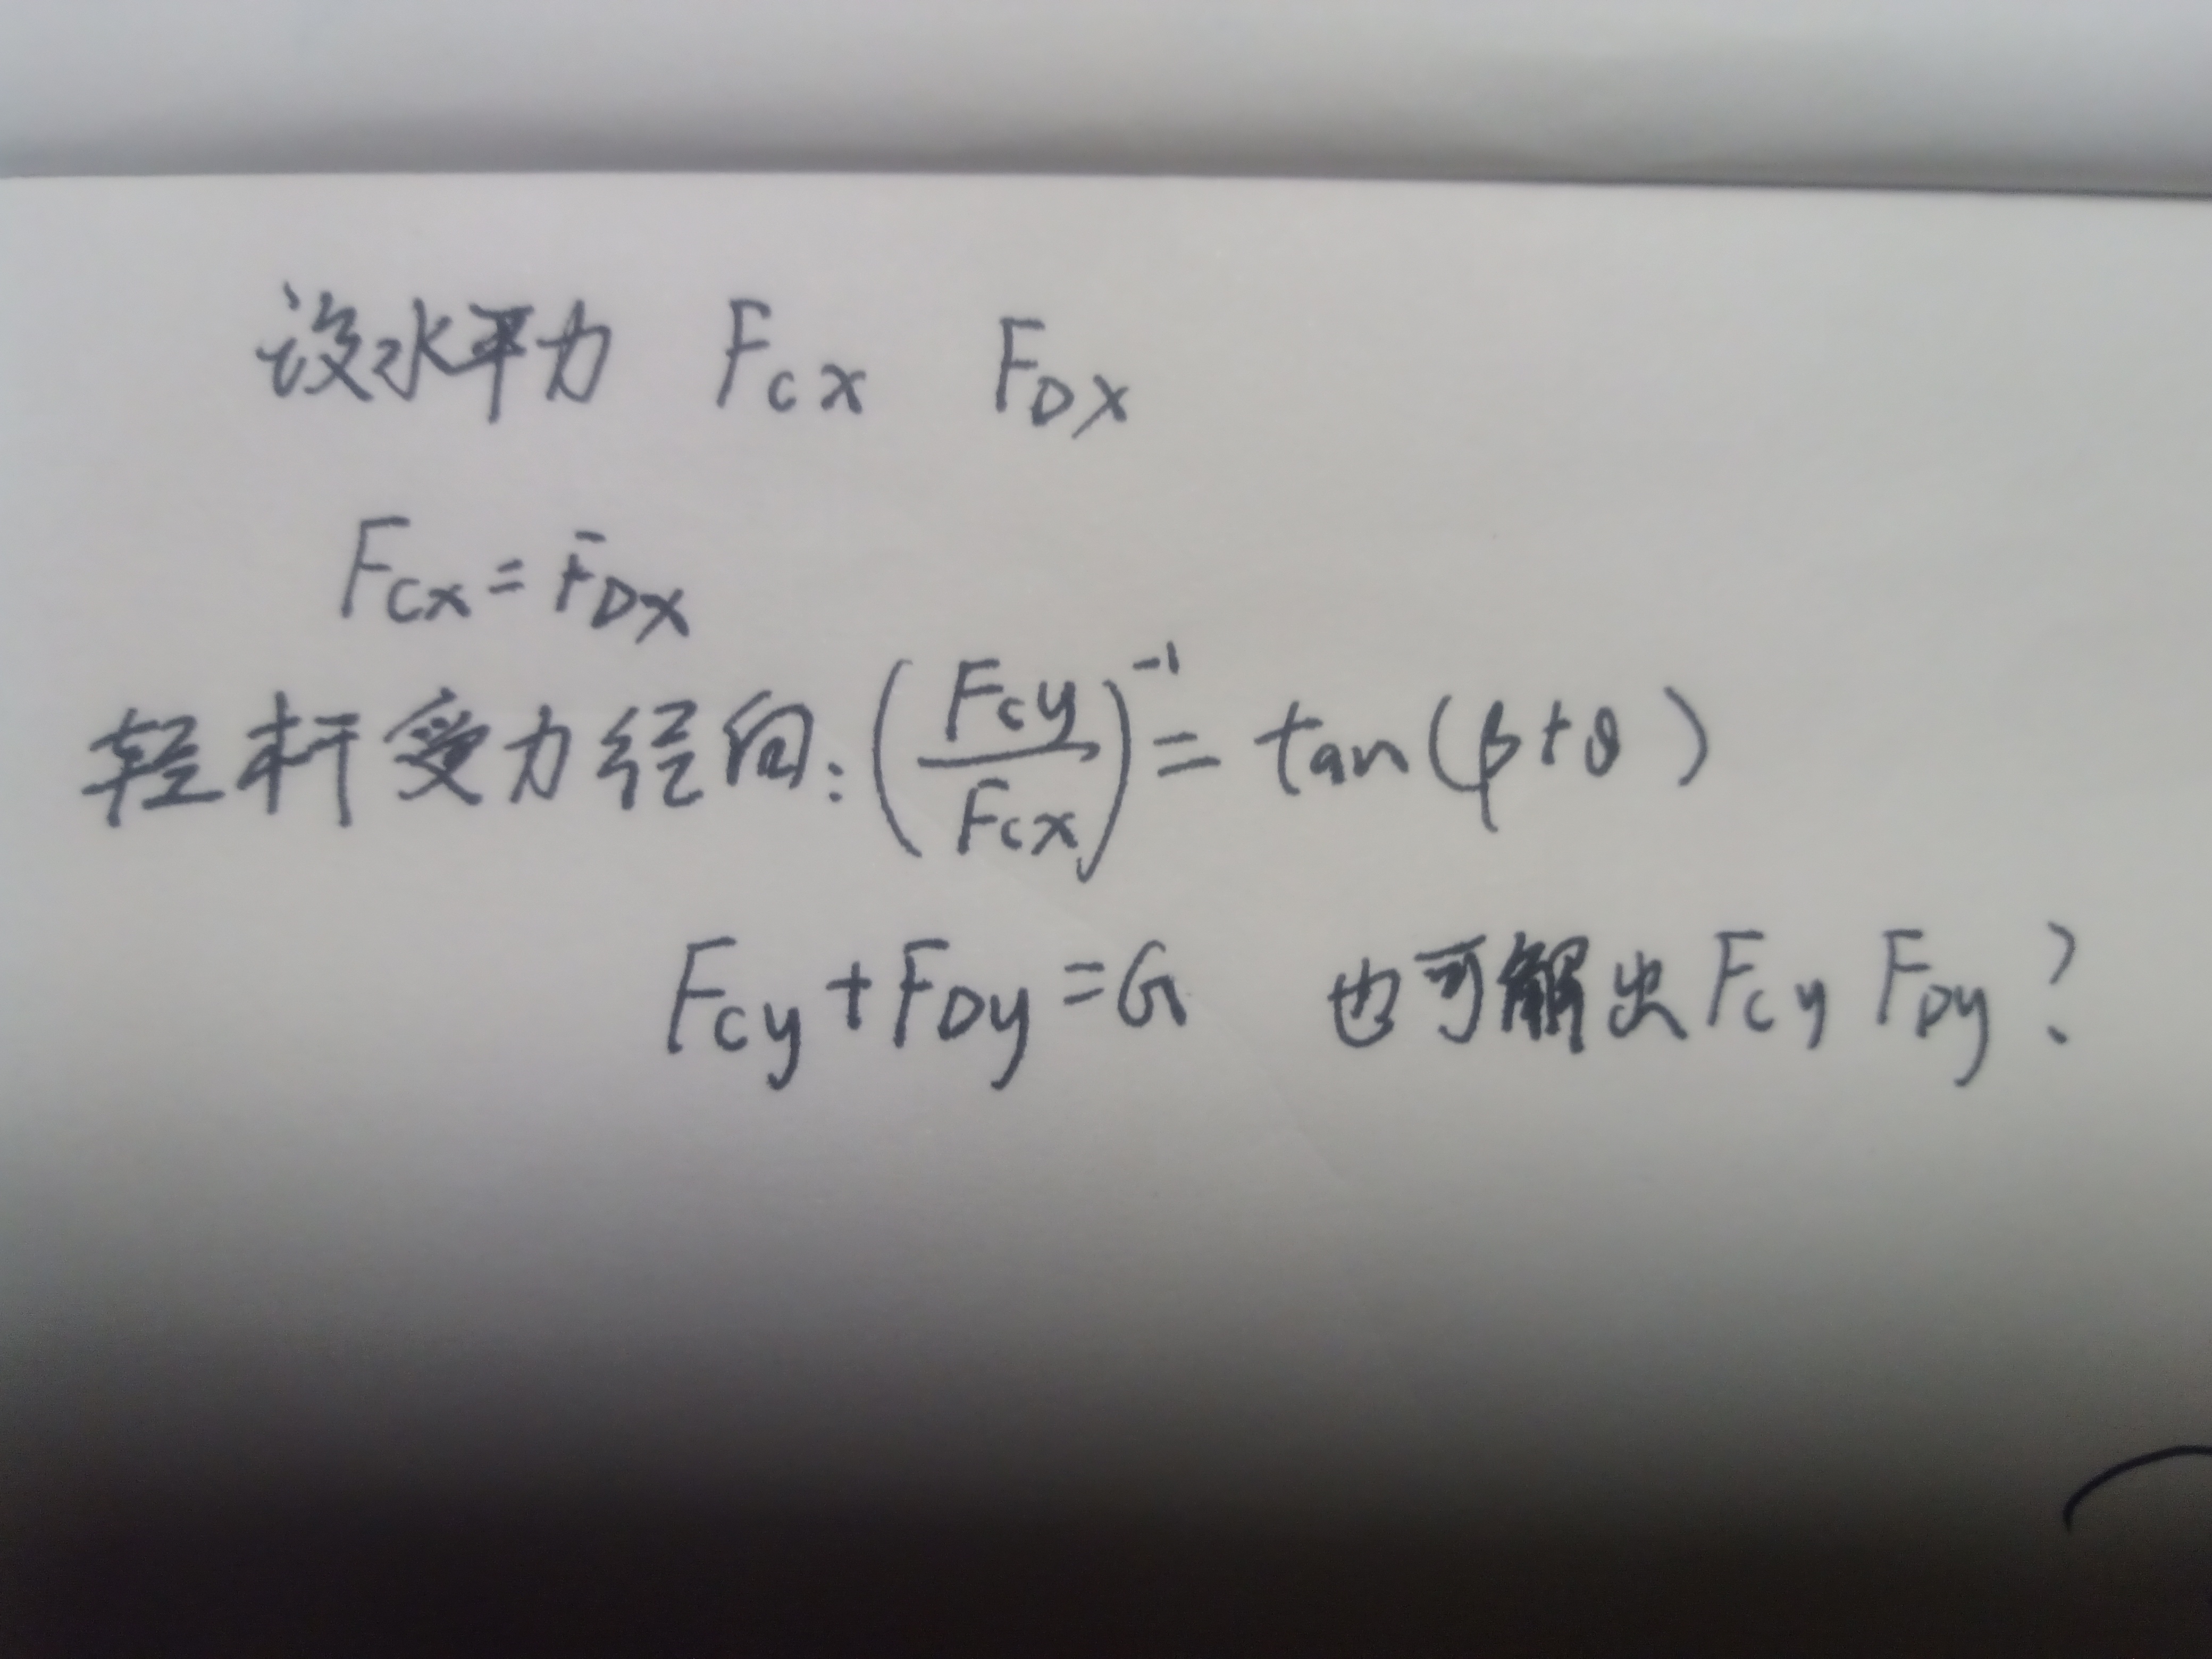 设水平力 Fcx FDx
Fcx = FDx
轻杆受力径向: (Fcy/Fcx)⁻¹ = tan(β+θ)
Fcy + FDy = G 也可解出 Fcy FDy?